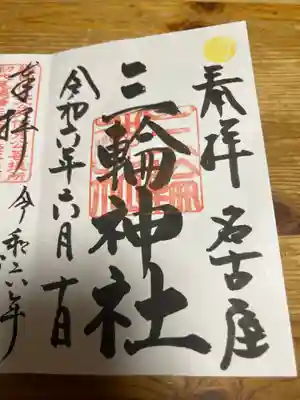 奉拝 名古屋
三輪神社
令和六年六月十日
奉拝 令和六年